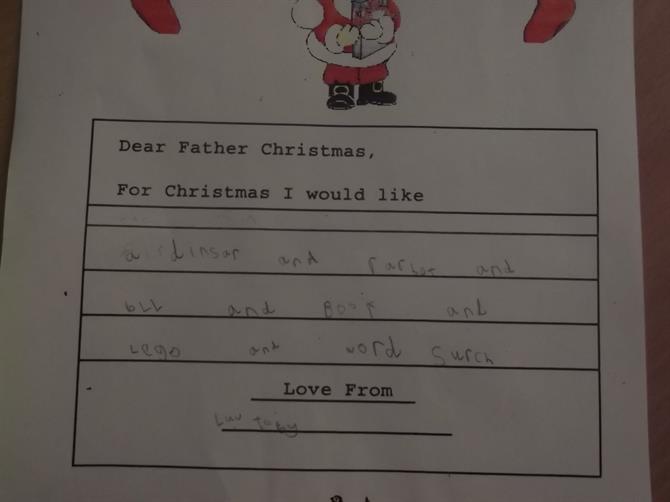 Dear Father Christmas,
For Christmas I would like
a dinsor and and
bll and Book and
Lego and word Surch
Love From
Luv toby